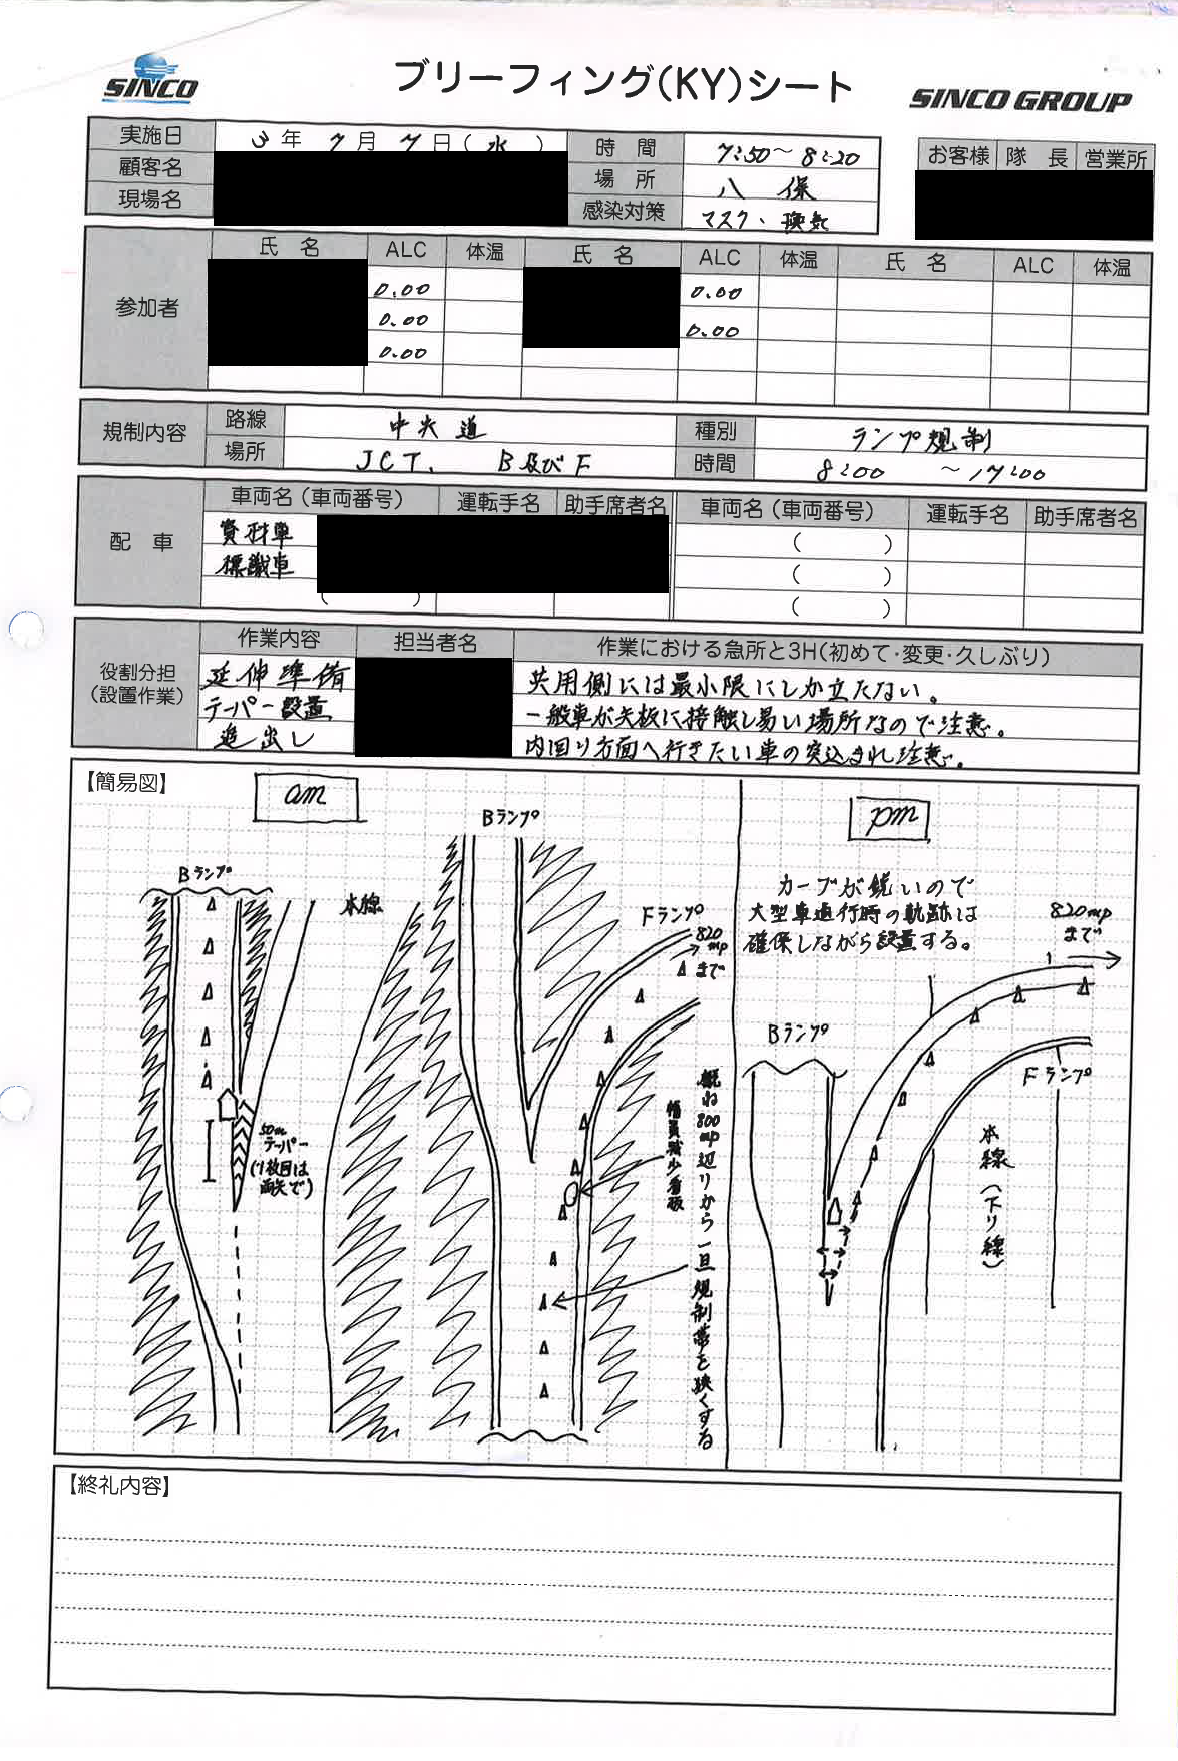 SINCO
ブリーフィング(KY)シート
SINCO GROUP
実施日 3年 7月 7日(水) 時間 7:50〜8:20
お客様 隊長 営業所
顧客名 場所 八保
現場名 感染対策 マスク、換気
参加者
氏名 ALC 体温 氏名 ALC 体温 氏名 ALC 体温
0.00 0.00
0.00 0.00
0.00
規制内容
路線 中央道 種別 ランプ規制
場所 JCT. B及びF 時間 8:00 〜17:00
配車
車両名(車両番号) 運転手名 助手席者名 車両名(車両番号) 運転手名 助手席者名
資材車 ( )
標識車 ( )
( ) ( )
役割分担(設置作業)
作業内容 担当者名 作業における急所と3H(初めて・変更・久しぶり)
延伸準備 共用側には最小限にしか立たない。
テーパー設置 一般車が矢板に接触し易い場所なので注意。
追出し 内回り方面へ行きたい車の突込まれ注意。
【簡易図】
am
Bランプ
本線
50m
テーパー
(1枚目は
両矢で)
Bランプ
Fランプ
820
mp
まで
幅員減少看板
概ね800mp辺りから一旦規制帯を狭くする
pm
カーブが鋭いので
大型車通行時の軌跡は
確保しながら設置する。
820mp
まで
Bランプ
Fランプ
本線(下り線)
【終礼内容】